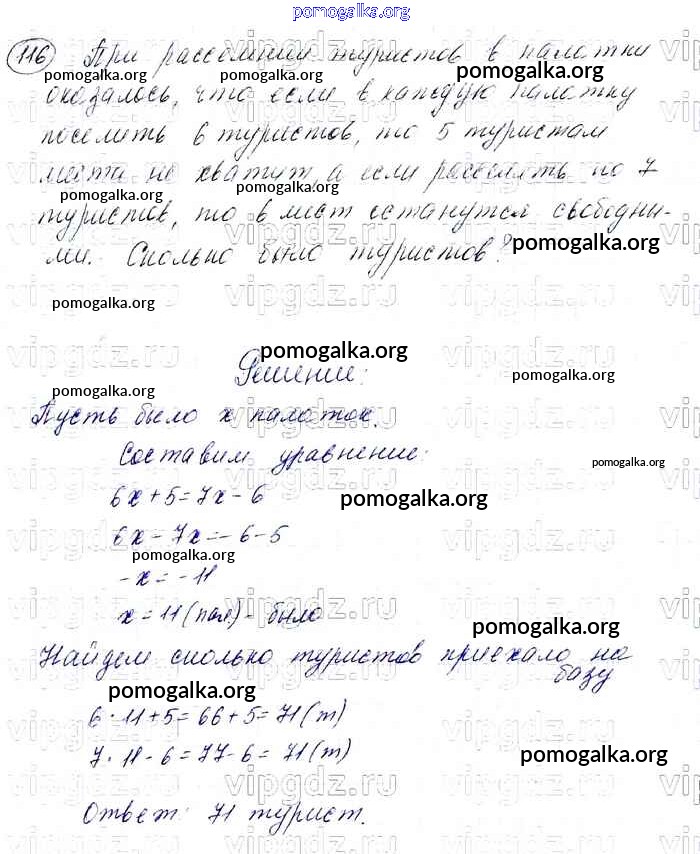 pomogalka.org
116 При расселении туристов в палатки
pomogalka.org pomogalka.org pomogalka.org
оказалось, что если в каждую палатку
поселить 6 туристов, то 5 туристам
места не хватит, а если расселять по 7
pomogalka.org pomogalka.org
туристов, то 6 мест останутся свободны-
ми. Сколько было туристов?
pomogalka.org
pomogalka.org
vipgdz.ru vipgdz.ru vipgdz.ru
pomogalka.org
Решение:
pomogalka.org pomogalka.org
Пусть было x палаток.
Составим уравнение:
pomogalka.org
6x+5=7x-6
pomogalka.org
6x-7x=-6-5
pomogalka.org
-x=-11
x=11(пал)- было
pomogalka.org
Найдем сколько туристов приехало на
базу
pomogalka.org
6·11+5=66+5=71(т)
7·11-6=77-6=71(т)
pomogalka.org
Ответ: 71 турист.